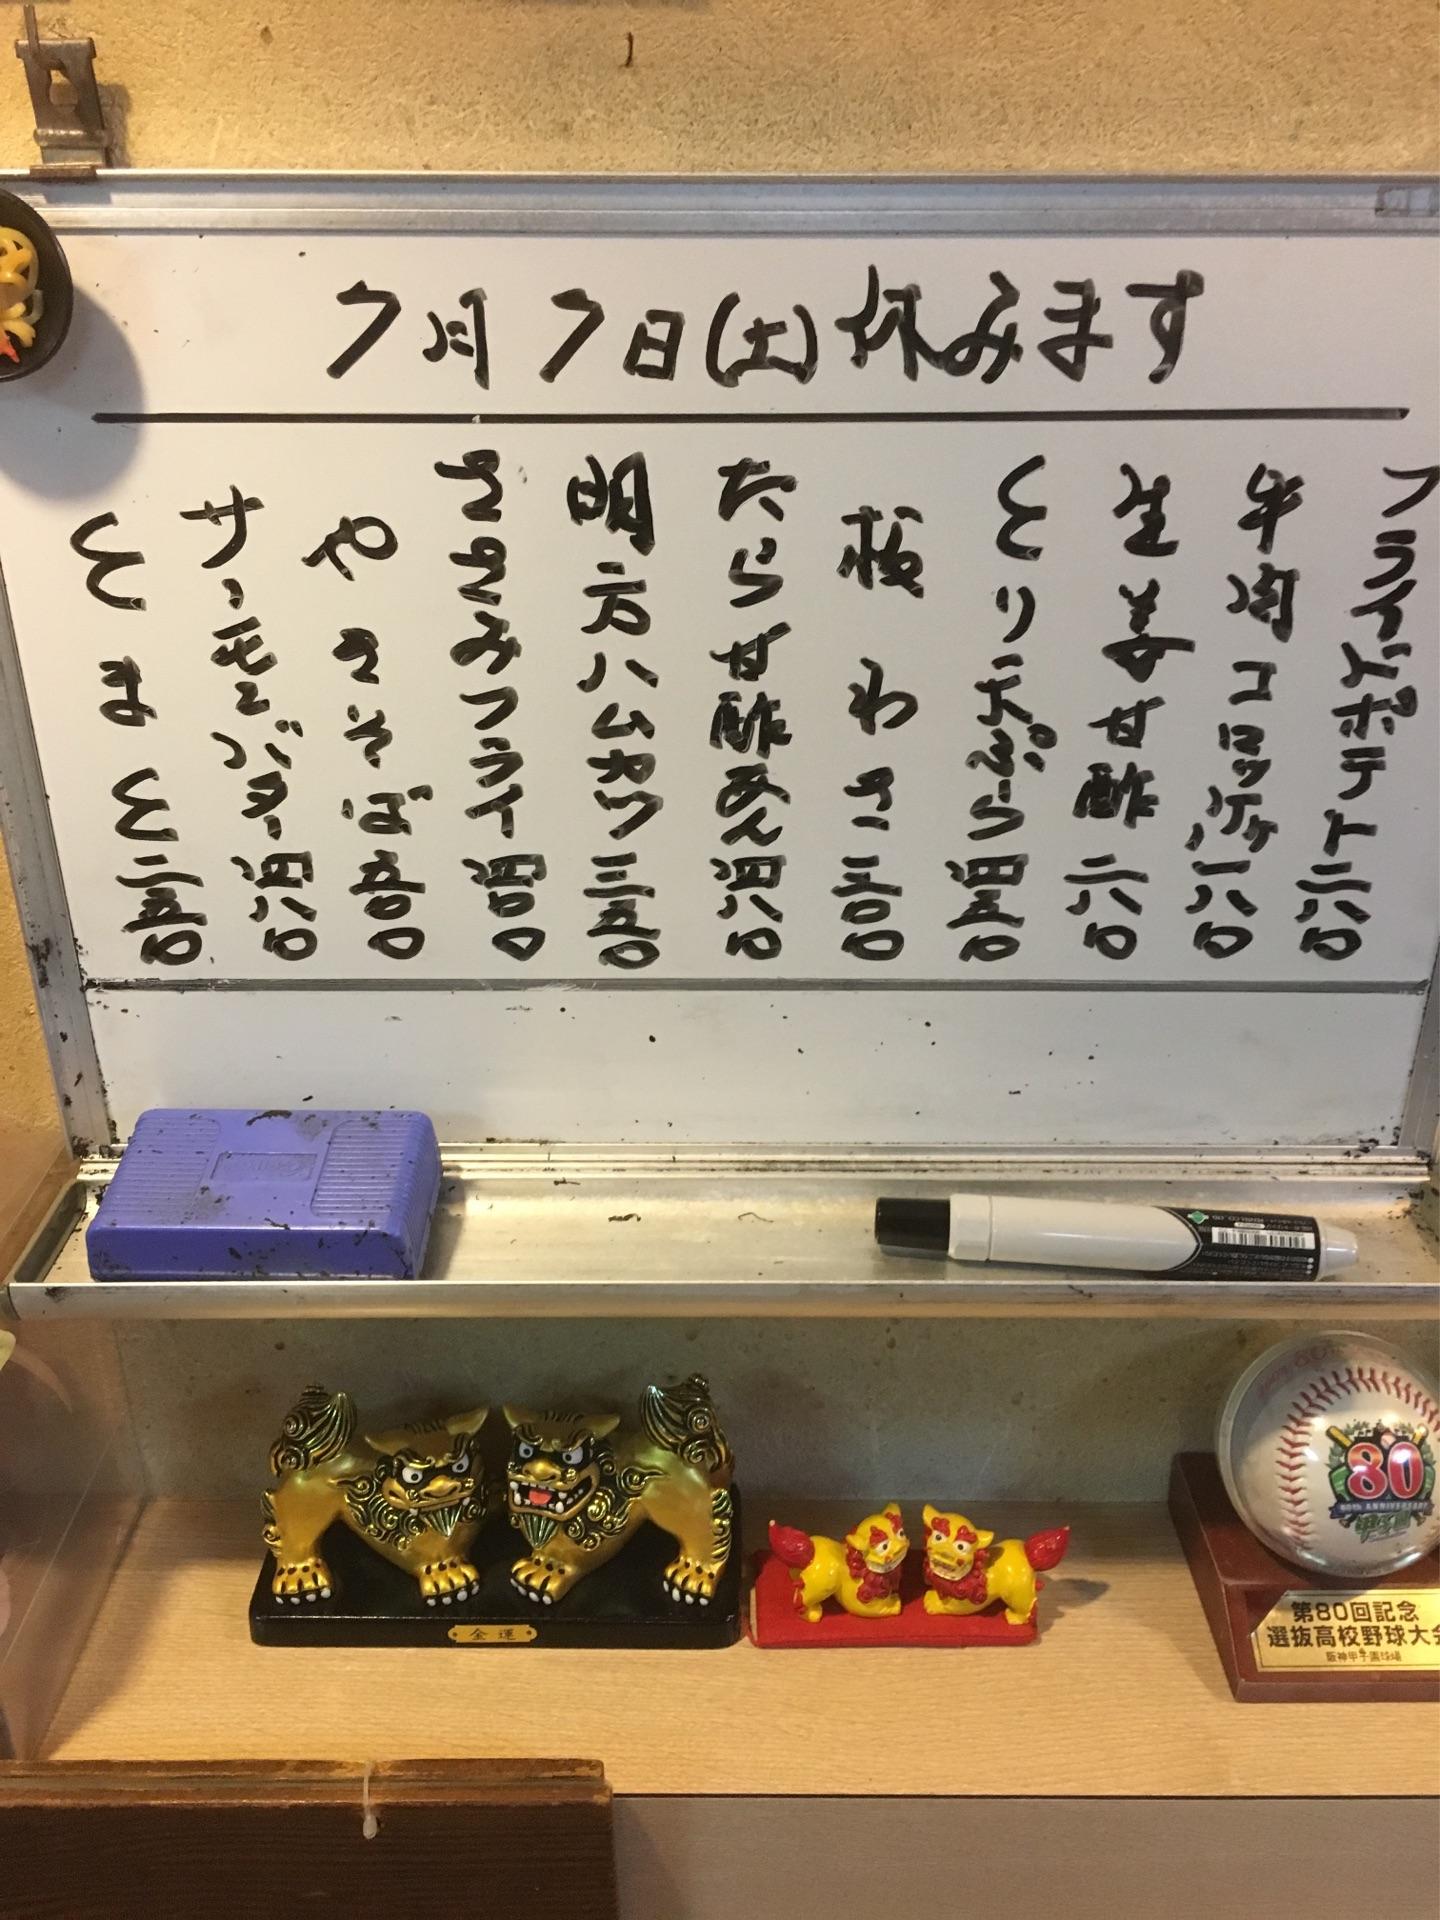 7月7日(土)休みます
フライドポテト二八〇
牛肉コロッケ一八〇
生姜甘酢二八〇
とり天ぷら四五〇
板わさ三〇〇
たら甘酢あん四八〇
明方ハムカツ三五〇
ささみフライ四〇〇
やきそば五〇〇
サーモンバター四八〇
とまと二五〇
金運
80
80th ANNIVERSARY
第80回記念
選抜高校野球大会
阪神甲子園球場